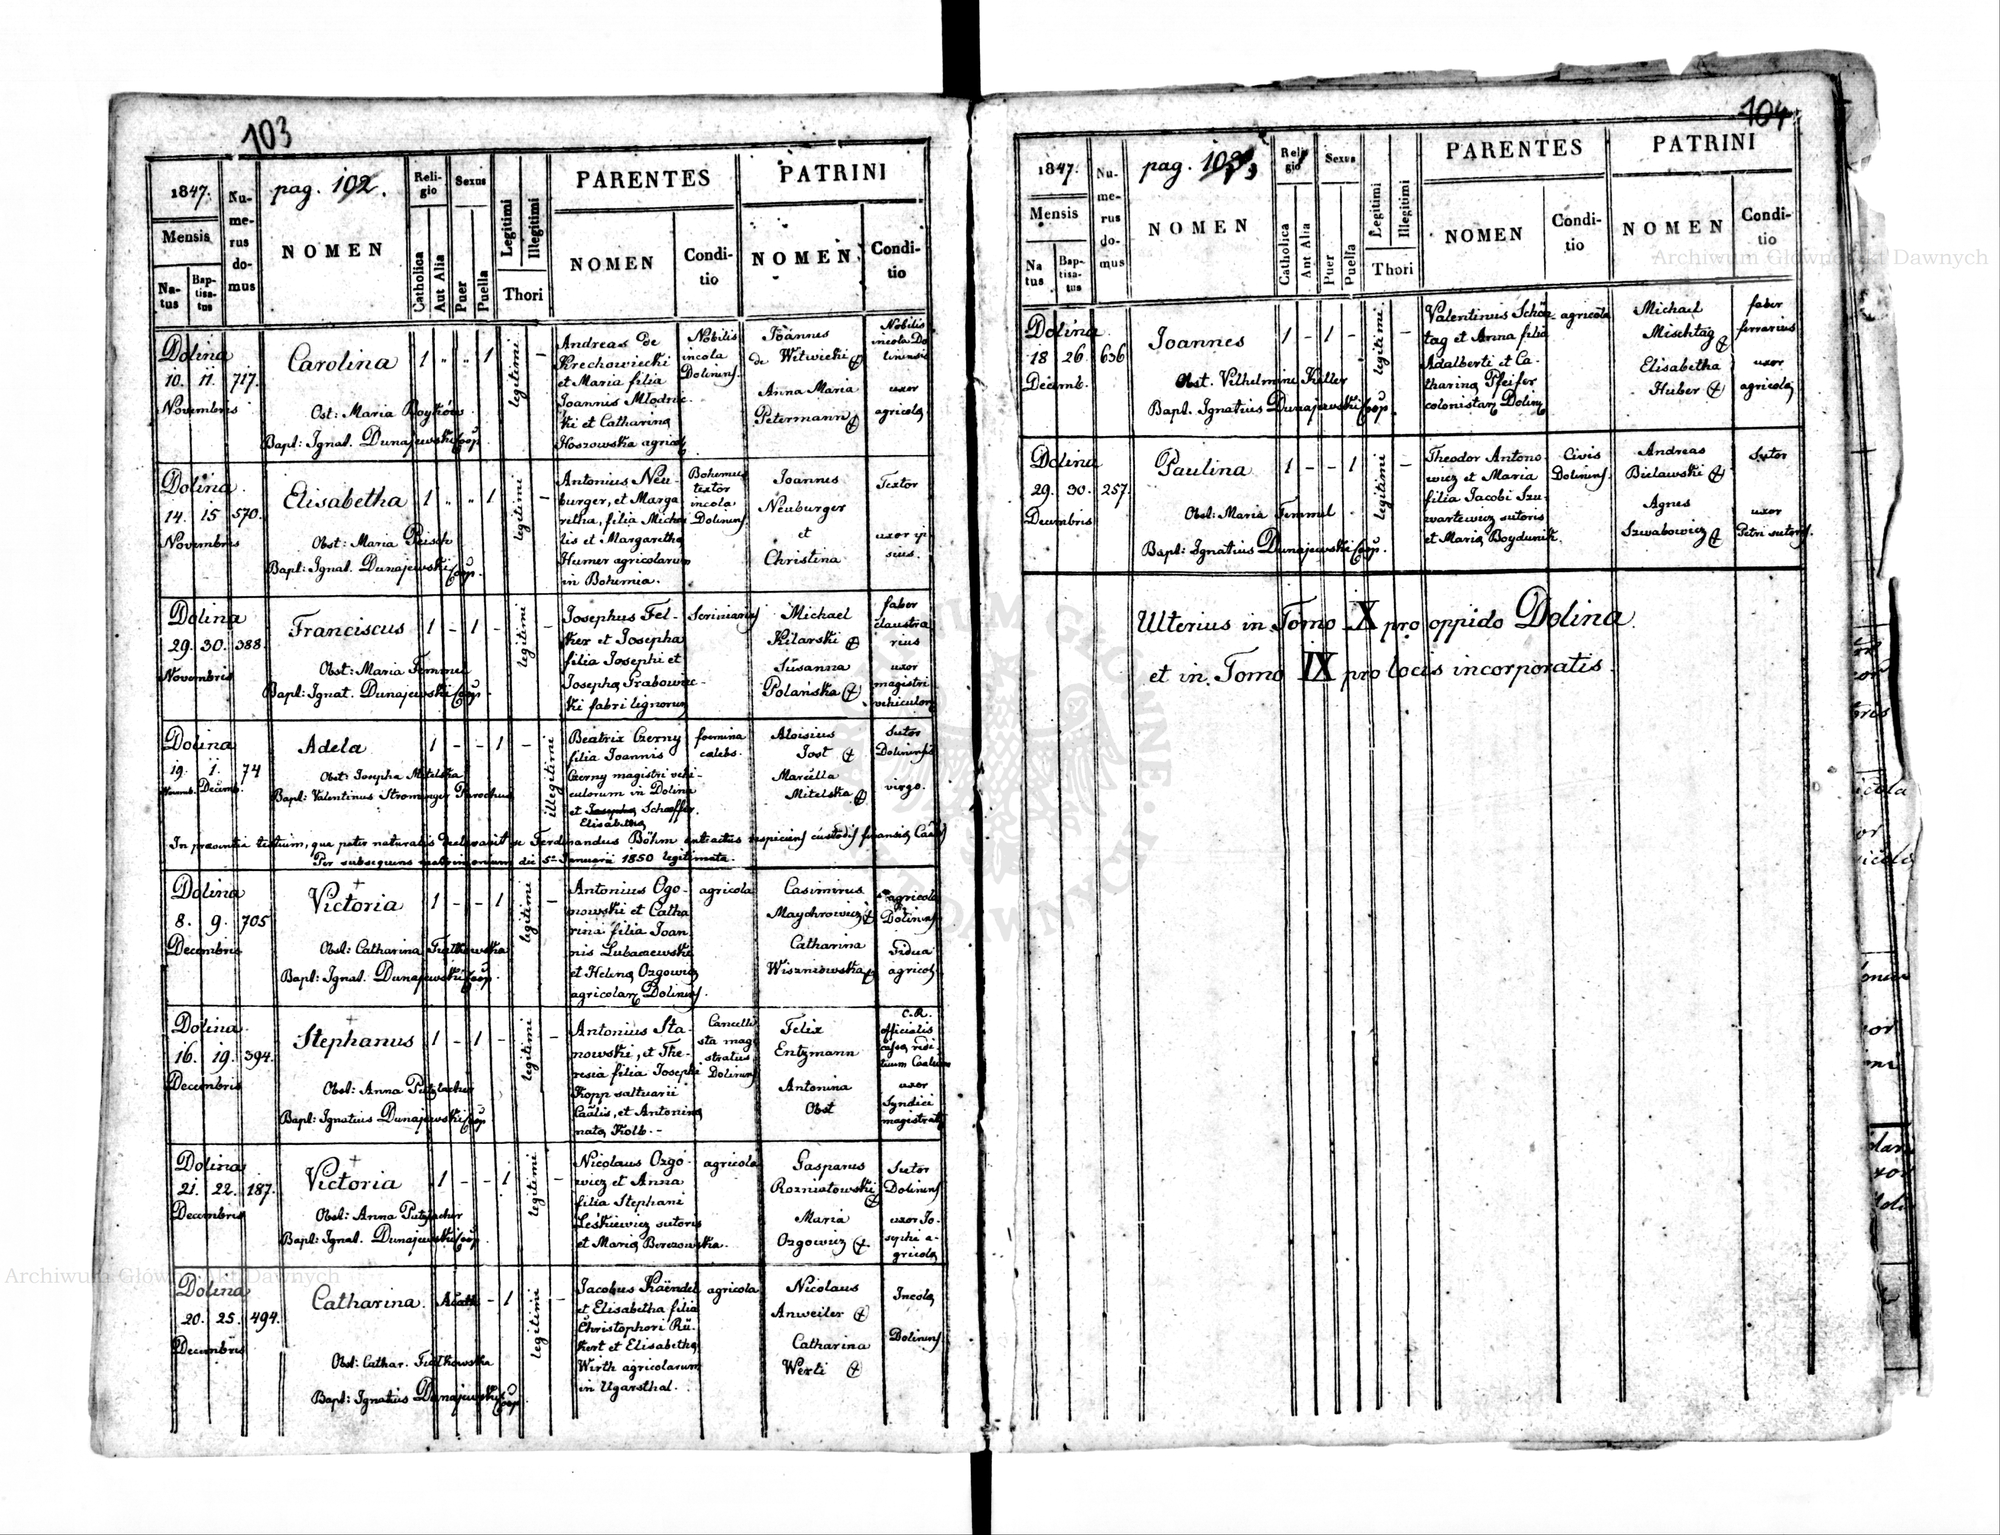 103
1847.
Mensis
Na-
tus
Bap-
tisa-
tus
Nu-
me-
rus
do-
mus
pag. 102.
NOMEN
Reli-
gio
Catholica
Aut Alia
Sexus
Puer
Puella
Legitimi
Illegitimi
Thori
PARENTES
NOMEN
Condi-
tio
PATRINI
NOMEN
Condi-
tio
Dolina
10. 11. 717.
Novembris
Carolina
Ost: Maria Boyków
Bapt: Ignat. Dunajewski Coop.
1 " " 1
legitimi
–
Andreas de
Krechowiecki
et Maria filia
Joannis Mlodnic-
ki et Catharina
Hoszowska agricol
Nobilis
incola
Dolinens.
Joannes
de Witwicki
Anna Maria
Petermann
Nobilis
incola Do
linensis
uxor
agricola
Dolina
14. 15 570.
Novembris
Elisabetha
Obst: Maria Peisch
Bapt: Ignat. Dunajewski Coop.
1 " " 1
legitimi
–
Antonius Neu-
burger, et Marga
retha, filia Micha
lis et Margaretha
Humer agricolarum
in Bohemia.
Bohemus
textor
incola
Dolinens
Joannes
Neuburger
et
Christina
Textor
uxor ip
sius.
Dolina
29. 30. 388.
Novembris
Franciscus
Obst: Maria Femmel
Bapt: Ignat. Dunajewski Coop
1 – 1 –
legitimi
–
Josephus Fel-
ker et Josepha
filia Josephi et
Josepha Grabowic-
ki fabri lignorum
Scriniarius
Michael
Kilarski
Susanna
Polańska
faber
claustra
rius
uxor
magistri
vehiculor
Dolina
19. 1. 74
Novemb. Decemb.
Adela
Obst: Josepha Mitelska
Bapt: Valentinus Strominger Parochus
1 – – 1 –
illegitimi
Beatrix Czerny
filia Joannis
Czerny magistri vehi-
culorum in Dolina
et Josepha Schaeffer.
Elisabetha
foemina
caelebs.
Aloisius
Jost
Marcella
Mitelska
Sutor
Dolinensis
virgo.
In praesentia testium, que pater naturalis declaravit se Ferdinandus Böhm
Per subsequens matrimonium die 5ta Januarii 1850 legitimata.
Dolina
8. 9. 705
Decembris
Victoria
Obst: Catharina Fiatkowska
Bapt: Ignat. Dunajewski Coop.
1 – – 1
legitimi
–
Antonius Ogo-
nowski et Catha
rina filia Joan
nis Lubaczewski
et Helena Ozgowicz
agricolar. Dolinens.
agricola
Casimirus
Maychrowicz
Catharina
Wiszniowska
agricola
Dolinens
vidua
agricol
Dolina
16. 19. 394.
Decembris
Stephanus
Obst: Anna Putzlacher
Bapt: Ignatius Dunajewski Coop
1 – 1 –
legitimi
–
Antonius Sta-
nowski, et The-
resia filia Josephi
Kopp saltuarii
Caälis, et Antonina
nata Kolb. –
Cancelli
sta magi
stratus
Dolinens
Felix
Entzmann
Antonina
Obst
C.R.
officialis
uxor
Syndici
magistrat
Dolina
21. 22. 187.
Decembris
Victoria
Obst: Anna Putzlacher
Bapt: Ignat. Dunajewski Coop.
1 – – 1
legitimi
–
Nicolaus Ozgo-
wicz et Anna
filia Stephani
Leśkiewicz sutoris
et Maria Berezowska.
agricola
Gasparus
Rozniatowski
Maria
Ozgowicz
Sutor
Dolinens
uxor Jo-
sephi a-
gricola
Dolina
20. 25. 494.
Decembris
Catharina.
Obst: Cathar. Fiatkowska
Bapt: Ignatius Dunajewski Coop.
Acath. – 1
legitimi
–
Jacobus Kaëndel
et Elisabetha filia
Christophori Rü-
kert et Elisabetha
Wirth agricolarum
in Ugarsthal.
agricola
Nicolaus
Anweiler
Catharina
Werli
Incola
Dolinens
104
1847.
Mensis
Na
tus
Bap-
tisa-
tus
Nu-
me-
rus
do-
mus
pag. 103
NOMEN
Reli
gio
Catholica
Aut Alia
Sexus
Puer
Puella
Legitimi
Illegitimi
Thori
PARENTES
NOMEN
Condi-
tio
PATRINI
NOMEN
Condi-
tio
Dolina
18 26 636
Decemb.
Joannes
Obst. Vilhelmine Keller
Bapt. Ignatius Dunajewski Coop.
1 – 1 –
legitimi
–
Valentinus Schön-
tag et Anna filia
Adalberti et Ca-
tharina Pfeifer
colonistar. Dolin
agricola
Michael
Mischtag
Elisabetha
Huber
faber
ferrarius
uxor
agricola
Dolina
29. 30. 257.
Decembris
Paulina
Obst: Maria Femmel
Bapt: Ignatius Dunajewski Coop.
1 – – 1
legitimi
–
Theodor Antono-
wicz et Maria
filia Jacobi Szu-
wartewicz sutoris
et Maria Boydunik.
Civis
Dolinens
Andreas
Bielawski
Agnes
Szwabowicz
Sutor
uxor
Petri sutoris.
Ulterius in Tomo X pro oppido Dolina.
et in Tomo IX pro locis incorporatis.
Archiwum Główne Akt Dawnych
Archiwum Główne Akt Dawnych